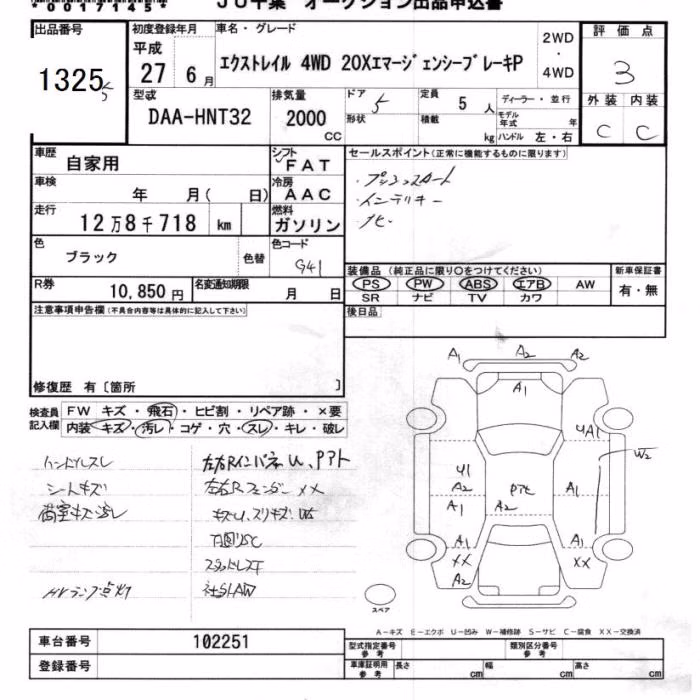 *0017145*
JU千葉 オークション出品申込書
出品番号
1325
5
初度登録年月
平成
27 6月
車名・グレード
エクストレイル 4WD 20XエマージェンシーブレーキP
2WD
・
4WD
評価点
3
外装 内装
C C
型式
DAA-HNT32
排気量
2000
CC
ドア 5
形状
定員 5人
積載 kg
ディーラー・並行
モデル年式 年
ハンドル 左・右
車歴
自家用
シフト
FAT
セールスポイント(正常に機能するものに限ります)
・プッシュスタート
・インテリキー
・ナビ
車検
年 月( 日)
冷房
AAC
走行
12万8千718 km
燃料
ガソリン
色
ブラック
色替
色コード
G41
装備品(純正品に限り○をつけてください)
PS PW ABS エアB AW
SR ナビ TV カワ
新車保証書
有・無
R券
10,850円
名変通知期限
月 日
後日品
注意事項申告欄(不具合内容等は具体的に記入して下さい)
修復歴 有〔箇所 〕
検査員
記入欄
FW キズ・飛石・ヒビ割・リペア跡・×要
内装 キズ・汚レ・コゲ・穴・スレ・キレ・破レ
ハンドルスレ
シートキズ
荷室キズ汚レ
HVランプ点灯
左右Rインパネ U、Pアト
左右Rフェンダー XX
キズU、スリキズ
下回りSC
A1 A2 A2
A1
UA1
W2
U1
A2
A1
A2
A1
A1
XX
A2
A1
XX
スペア
A-キズ E-エクボ U-凹み W-補修跡 S-サビ C-腐食 XX-交換済
車台番号
102251
登録番号
型式指定番号
参考
類別区分番号
参考
車庫証明用
参考
長さ cm
幅 cm
高さ cm